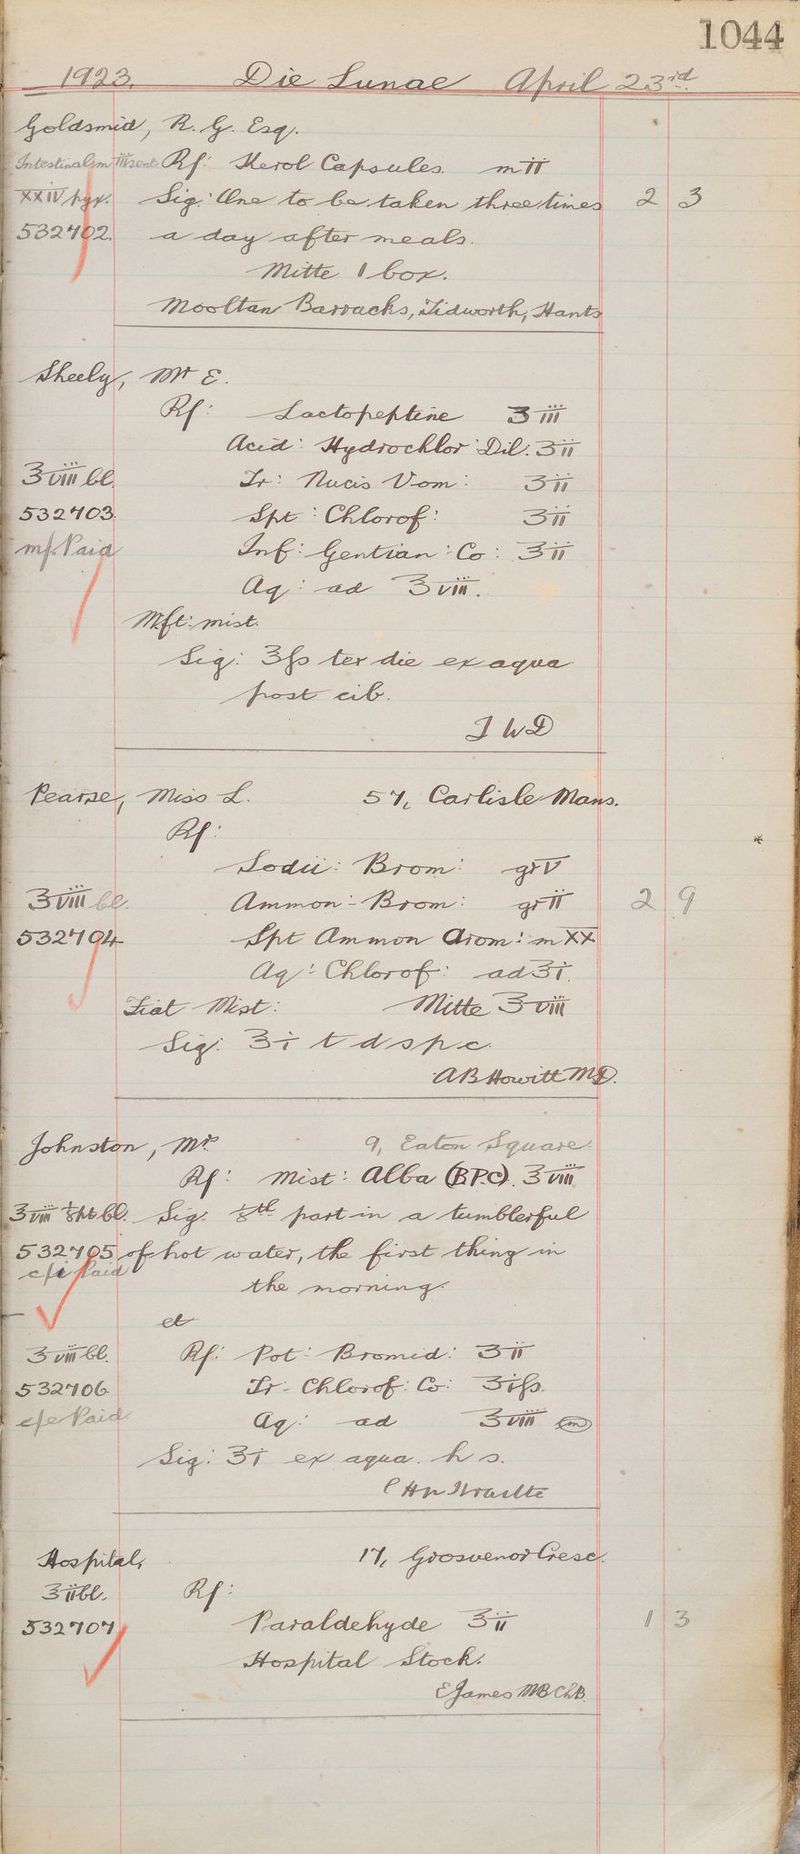 1044
1923. Die Lunae April 23rd
Goldsmid, R. G. Esq.
Rx Kerol Capsules. m ii
xxiv pyx. Sig: One to be taken three times 2 3
532702. a day after meals.
Mitte 1 box.
Mooltan Barracks, Tidworth, Hants
Sheely, Mr E.
Rx: Lactopeptine ʒiii
Acid: Hydrochlor: Dil: ʒii
℥viii bl. Tr: Nucis Vom: ʒii
532703 Spt: Chlorof: ʒii
Paid Inf: Gentian: Co: ℥ii
Aq: ad ℥viii.
M.ft: mist.
Sig: ℥fs ter die ex aqua
post cib.
J W D
Pearse, Miss L. 57, Carlisle Mans.
Rx:
Sodii: Brom: gr v
℥viii bl. Ammon: Brom: gr ii 2 9
532704 Spt Ammon Arom: m xx
Aq: Chlorof: ad ℥i.
Fiat Mist: Mitte ℥viii
Sig: ℥i t d s p c.
A B Howitt M.D.
Johnston, Mrs 9, Eaton Square.
Rx: Mist: Alba (B.P.C). ℥viii
℥viii ⅛pt bl. Sig: ⅛th part in a tumblerful
532705 of hot water, the first thing in
Paid the morning.
et
℥viii bl. Rx: Pot: Bromid: ʒii
532706 Tr: Chlorof: Co: ʒifs
c/c Paid Aq: ad ℥viii m
Sig: ℥i ex aqua. h s.
Hospital, 17, Grosvenor Cresc.
℥ii bl. Rx:
532707 Paraldehyde ℥ii 1 3
Hospital Stock.
E James MB ChB.